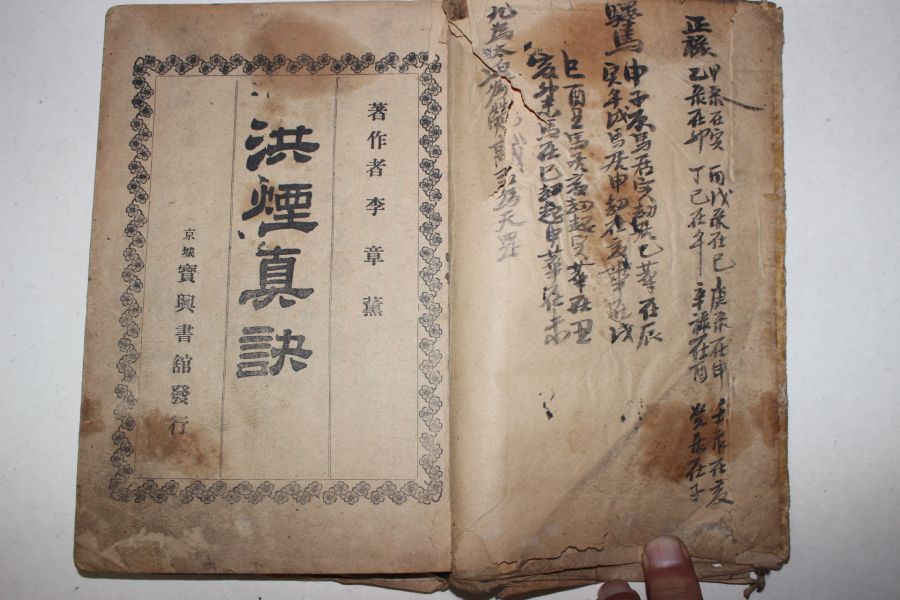 正祿 甲祿在寅 丙戊祿在巳 庚祿在申 壬祿在亥
乙祿在卯 丁巳在午 辛祿在酉 癸祿在子
驛馬 申子辰馬居寅劫巳華在辰
寅午戌馬居申劫在亥華在戌
巳酉丑馬亥劫起寅華在丑
亥卯未馬在巳劫起申華在未
天罡
著作者 李章薰
洪煙真訣
京城 寶興書舘發行